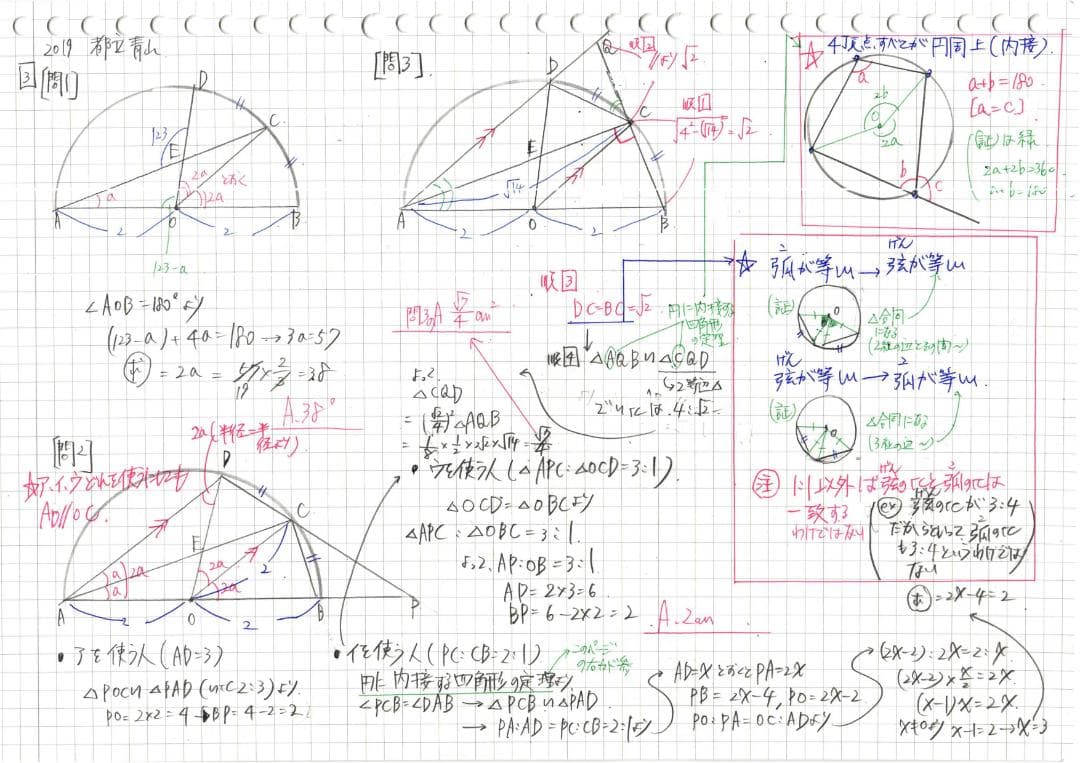 2019 都立青山
3 [問1]
D
C
123
E
2a とおく
a
2a
A
O
B
2
2
123-a
∠AOB=180°より
(123-a)+4a=180→3a=57
求=2a=57×2/3=38
19
A.38°
[問2]
2a(半径=半径より)
☆ア、イ、ウどれを使うにしても
AD//OC.
D
C
E
a
a
2a
2a
2a
2
A
O
B
P
2
2
・アを使う人(AD=3)
△POC∽△PAD(∽比2:3)より
PO=2×2=4→BP=4-2=2
[問3]
Q
順2
//より√2
D
C
順1
√4²-(√14)²=√2
E
√14
A
O
B
2
2
問3の A √7/4 cm²
順3
DC=BC=√2
円に内接する
四角形
の定理
順4 △AQB∽△CQD
↳2等辺△
で∽比は、4:√2
よって
△CQD
=(√2/4)²△AQB
=1/8×1/2×2√2×√14=√7/4
・ウを使う人(△APC:△OCD=3:1)
△OCD=△OBCより
△APC:△OBC=3:1
よって、AP:OB=3:1
AP=2×3=6
BP=6-2×2=2
A.2cm
・イを使う人(PC:CB=2:1)
このページ
の右上が条
円に内接する四角形の定理より
∠PCB=∠DAB→△PCB∽△PAD
→PA:AD=PC:CB=2:1より
AD=xとおくとPA=2x
PB=2x-4, PO=2x-2
PO:PA=OC:ADより
(2x-2):2x=2:x
(2x-2)×x/2=2x
(x-1)x=2x
x≠0より x-1=2→x=3
求=2x-4=2
☆ 4頂点すべてが円周上(内接).
a
2b
O
2a
b
c
a+b=180
[a=c]
(証)は緑
2a+2b=360
a+b=180
☆ 弧が等しい→弦が等しい
こ
げん
(証)
O
△合同
になる
(2組の辺とその間~)
弦が等しい→弧が等しい.
げん
こ
(証)
O
△合同になる
(3組の辺~)
注 1:1以外は弦の比と弧の比は
げん
こ
一致する
わけではない
ex 弦の比が3:4
げん
だからといって弧の比
こ
も3:4というわけでは
ない